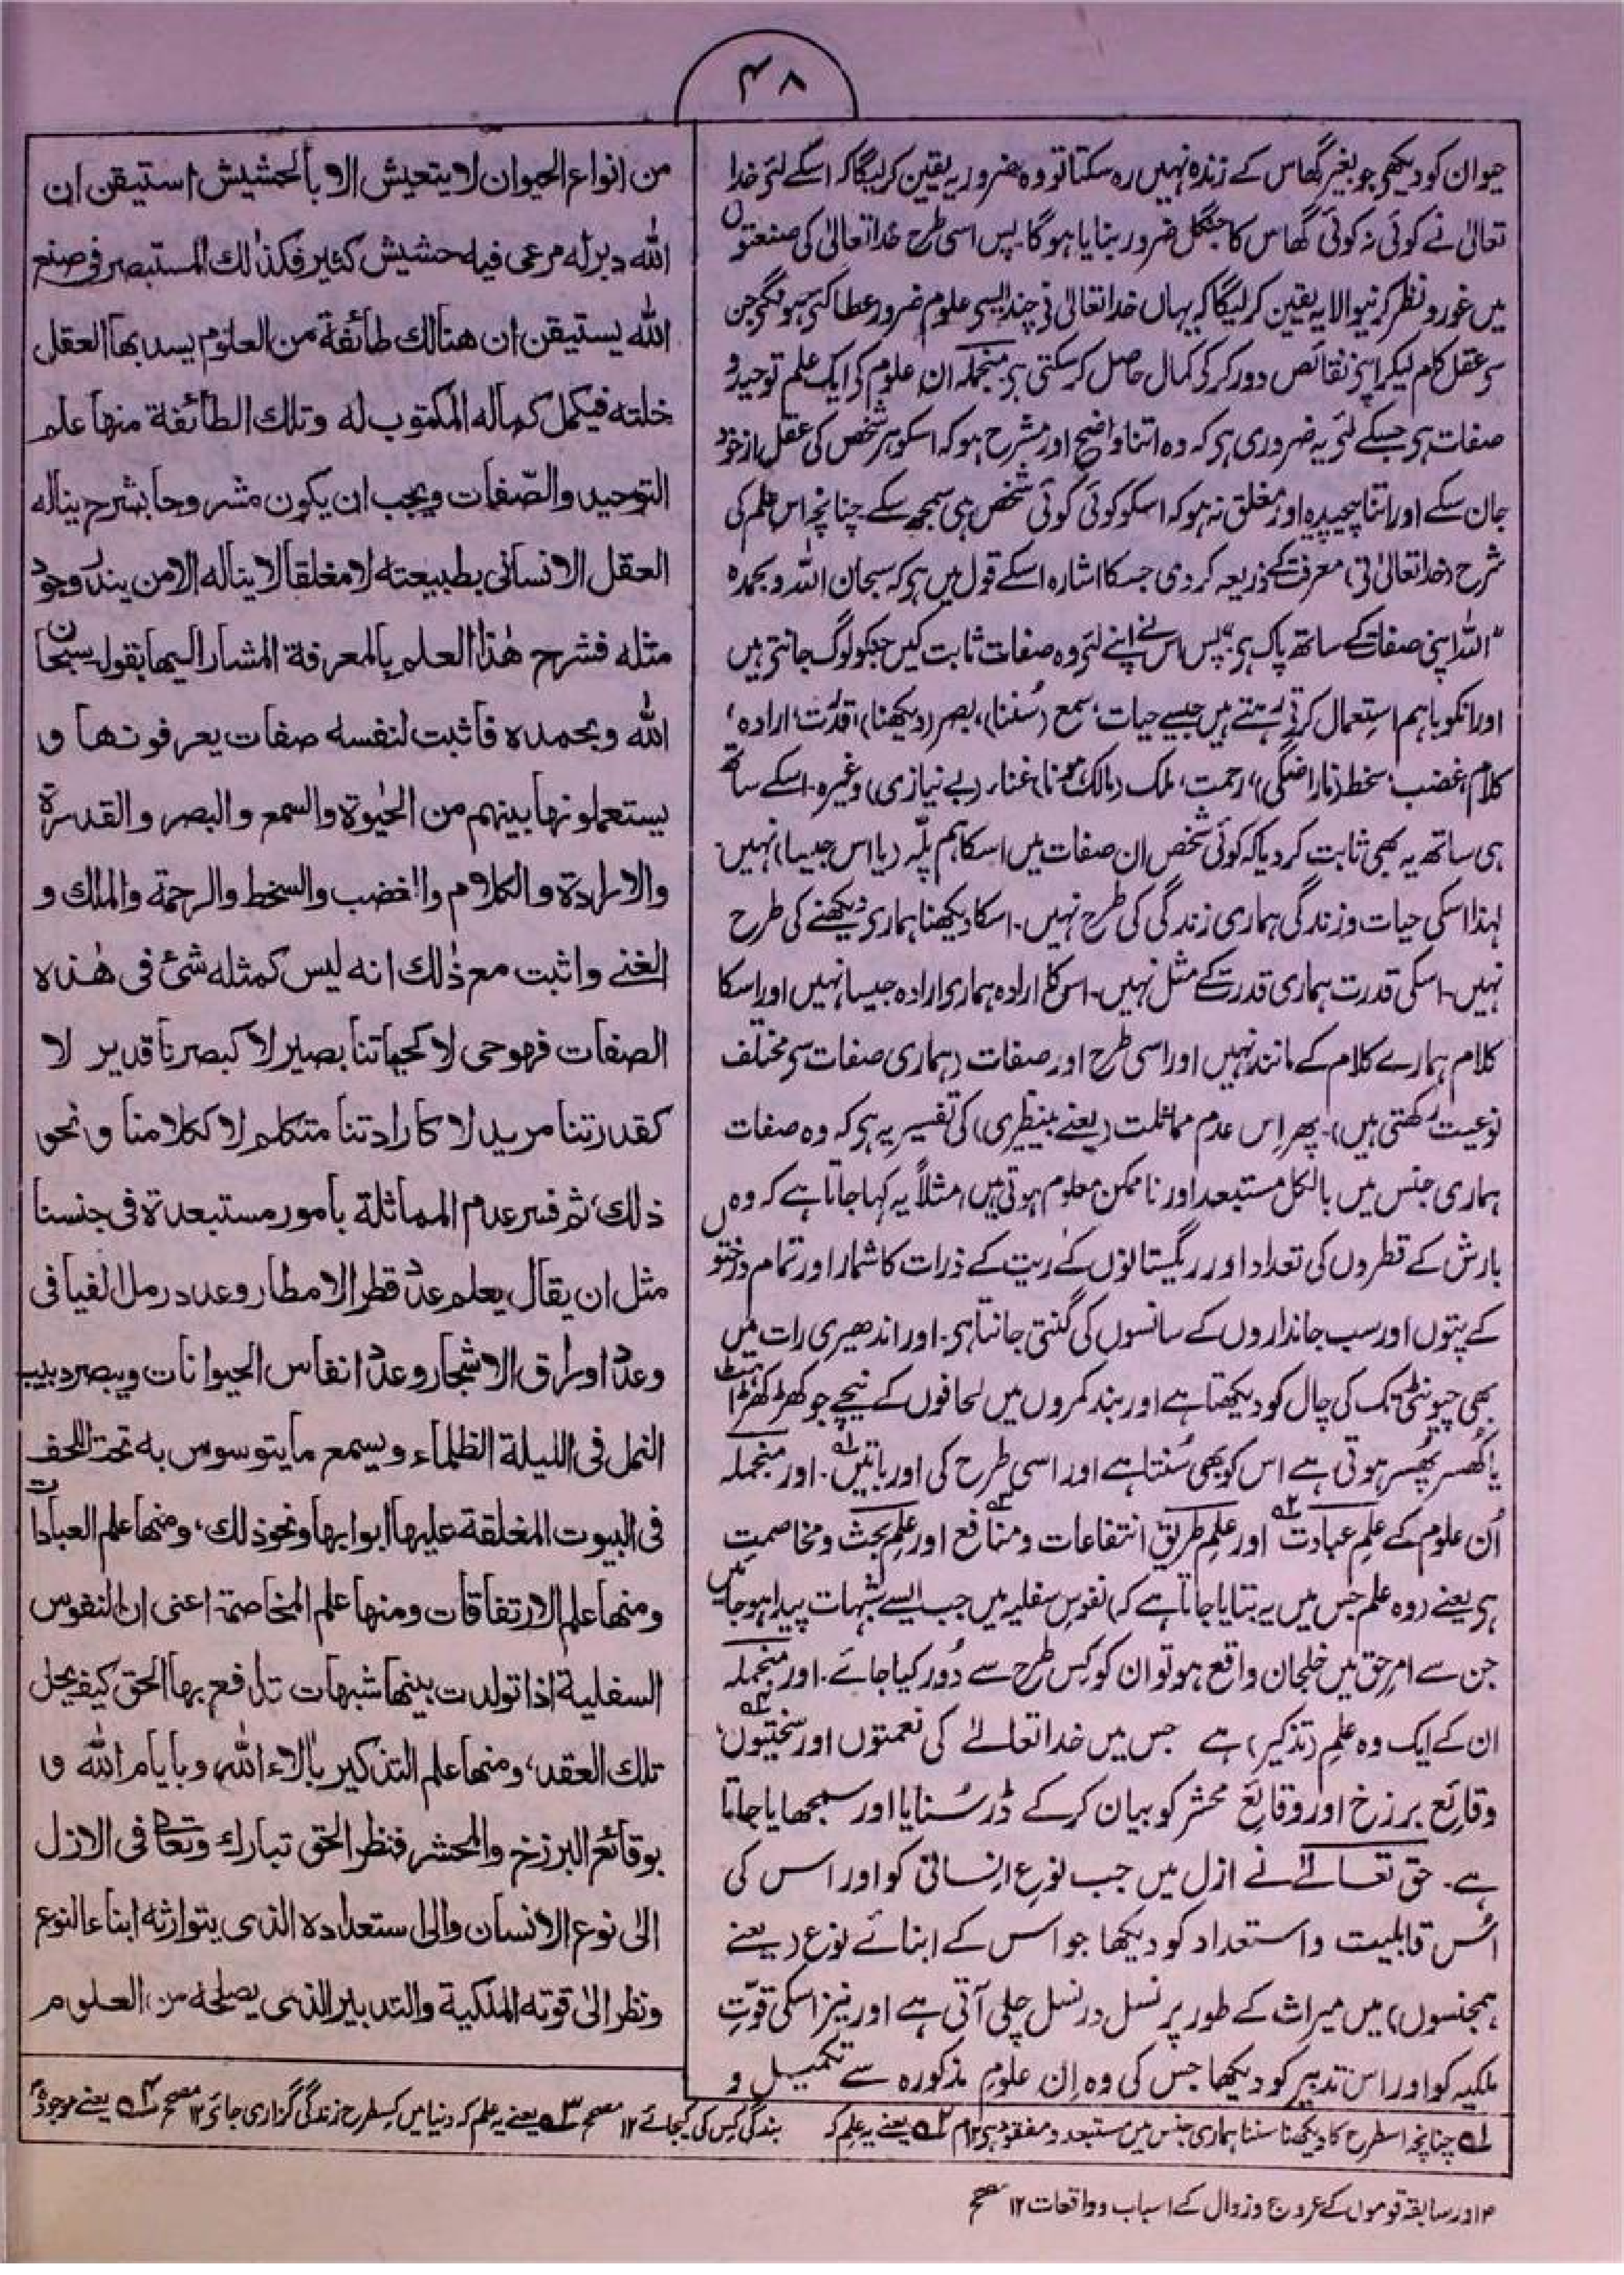 ۴۸
حیوان کو دیکھے جو بغیر گھاس کے زندہ نہیں رہ سکتا تو وہ ضرور یہ یقین کرلیگا کہ اسکے لئے خدا
تعالیٰ نے کوئی نہ کوئی گھاس کا جنگل ضرور بنایا ہوگا۔ پس اسی طرح خدا تعالیٰ کی صنعتوں
میں غور و نظر کرنیوالا یہ یقین کرلیگا کہ یہاں خدا تعالیٰ نے چند ایسے علوم ضرور عطا کئے ہونگے جن
سے عقل کام لیکر اپنے نقائص دور کرکے کمال حاصل کرسکتی ہے منجملہ ان علوم کے ایک علم توحید و
صفات ہے جسکے لئے یہ ضروری ہے کہ وہ اتنا واضح اور مشرح ہو کہ اسکو ہر شخص کی عقل از خود
جان سکے اور اتنا پیچیدہ اور مغلق نہ ہو کہ اسکو کوئی کوئی شخص ہی سمجھ سکے چنانچہ اس علم کی
شرح (خدا تعالیٰ نے) معرفت کے ذریعہ کردی جسکا اشارہ اسکے قول میں ہے کہ سبحان اللہ و بحمدہ
”اللہ اپنی صفات کے ساتھ پاک ہے“ پس اس نے اپنے لئے وہ صفات ثابت کیں جنکو لوگ جانتے ہیں
اور انکو باہم استعمال کرتے رہتے ہیں جیسے حیات، سمع (سُننا)، بصر (دیکھنا)، قدرت، ارادہ،
کلام، غضب، سخط (ناراضگی)، رحمت، ملک (مالک ہونا) غنا، (بے نیازی) وغیرہ۔ اسکے ساتھ
ہی ساتھ یہ بھی ثابت کردیا کہ کوئی شخص ان صفات میں اسکا ہم پلّہ (یا اس جیسا) نہیں۔
لہذا اسکی حیات و زندگی ہماری زندگی کی طرح نہیں۔ اسکا دیکھنا ہمارے دیکھنے کی طرح
نہیں۔ اسکی قدرت ہماری قدرت کے مثل نہیں۔ اس کا ارادہ ہماری ارادہ جیسا نہیں اور اسکا
کلام ہمارے کلام کے مانند نہیں اور اسی طرح اور صفات (ہماری صفات سے مختلف
نوعیت رکھتی ہیں)۔ پھر اس عدم مماثلت (یعنے بینظیری) کی تفسیر یہ ہے کہ وہ صفات
ہماری جنس میں بالکل مستبعد اور ناممکن معلوم ہوتی ہیں، مثلاً یہ کہا جاتا ہے کہ وہ
بارش کے قطروں کی تعداد اور ریگستانوں کے ریت کے ذرات کا شمار اور تمام درختوں
کے پتوں اور سب جانداروں کے سانسوں کی گنتی جانتا ہے۔ اور اندھیری رات میں
بھی چیونٹی تک کی چال کو دیکھتا ہے اور بند کمروں میں لحافوں کے نیچے جو کھڑکھڑاہٹ
یا کُھسر پُھسر ہوتی ہے اس کو بھی سُنتا ہے اور اسی طرح کی اور باتیں ۱؎۔ اور منجملہ
اُن علوم کے علم عبادت ۲؎ اور علم طریق انتفاعات و منافع ۳؎ اور علم بحث و مخاصمت
ہے یعنے (وہ علم جس میں یہ بتایا جاتا ہے کہ) نفوس سفلیہ میں جب ایسے شبہات پیدا ہوجائیں
جن سے امر حق میں خلجان واقع ہو تو ان کو کس طرح سے دُور کیا جائے۔ اور منجملہ
ان کے ایک وہ علم (تذکیر) ہے جس میں خدا تعالےٰ کی نعمتوں اور سختیوں ۴؎،
وقائع برزخ اور وقائع محشر کو بیان کرکے ڈر سُنایا اور سمجھایا جاتا
ہے۔ حق تعالےٰ نے ازل میں جب نوع انسانی کو اور اس کی
اُس قابلیت و استعداد کو دیکھا جو اس کے ابنائے نوع (یعنے
ہمجنسوں) میں میراث کے طور پر نسل در نسل چلی آتی ہے اور نیز اسکی قوّت
ملکیہ کو اور اس تدبیر کو دیکھا جس کی وہ اِن علوم مذکورہ سے تکمیل و
من انواع الحیوان لا یتعیش الا بالحشیش استیقن ان
اللہ دبر لہ مرعی فیہ حشیش کثیر فکذٰلک المستبصر فی صنع
اللہ یستیقن ان ھنالک طائفة من العلوم یسد بھا العقل
خلتہ فیکمل کمالہ المکتوب لہ وتلک الطائفة منھا علم
التوحید والصّفات ویجب ان یکون مشروحا بشرح ینالہ
العقل الانسانی بطبیعتہ لا مغلقا لا ینالہ الا من یندر وجود
مثلہ فشرح ھٰذا العلم بالمعرفة المشار الیھا بقولہ سبحان
اللہ وبحمدہ فاثبت لنفسہ صفات یعرفونھا و
یستعملونھا بینھم من الحیٰوة والسمع والبصر والقدرة
والارادة والکلام والغضب والسخط والرحمة والملک و
الغنے واثبت مع ذٰلک انہ لیس کمثلہ شئ فی ھٰذہ
الصفات فھو حی لا کحیاتنا بصیر لا کبصرنا قدیر لا
کقدرتنا مرید لا کارادتنا متکلم لا ککلامنا و نحو
ذلک، ثم فسر عدم المماثلة بامور مستبعدة فی جنسنا
مثل ان یقال یعلم عدد قطر الامطار وعدد رمل الفیافی
وعدد اوراق الاشجار وعدد انفاس الحیوانات ویبصر دبیب
النمل فی اللیلة الظلماء ویسمع ما یتوسوس بہ تحت اللحف
فی البیوت المغلقة علیھا ابوابھا ونحو ذلک، ومنھا علم العبادات
ومنھا علم الارتفاقات ومنھا علم المخاصمة اعنی ان النفوس
السفلیة اذا تولدت بینھا شبھات تدافع بھا الحق کیف یحل
تلک العقد، ومنھا علم التذکیر بالاء اللہ وبایام اللہ و
بوقائع البرزخ والمحشر فنظر الحق تبارک وتعالی فی الازل
الیٰ نوع الانسان والی استعدادہ الذی یتوارثہ ابناء النوع
ونظر الیٰ قوتہ الملکیة والتدبیر الذی یصلحہ من العلوم
۱؎ چنانچہ اسطرح کا دیکھنا سننا ہماری جنس میں مستبعد و مفقود ہے ۱۲م ۲؎ یعنے یہ علم کہ بندگی کس کی کیجائے ۱۲ مصحح ۳؎ یعنے یہ علم کہ دنیا میں کسطرح زندگی گزاری جائے ۱۲ مصحح ۴؎ یعنے موجودہ
۴ اور سابقہ قوموں کے عروج و زوال کے اسباب و واقعات ۱۲ مصحح